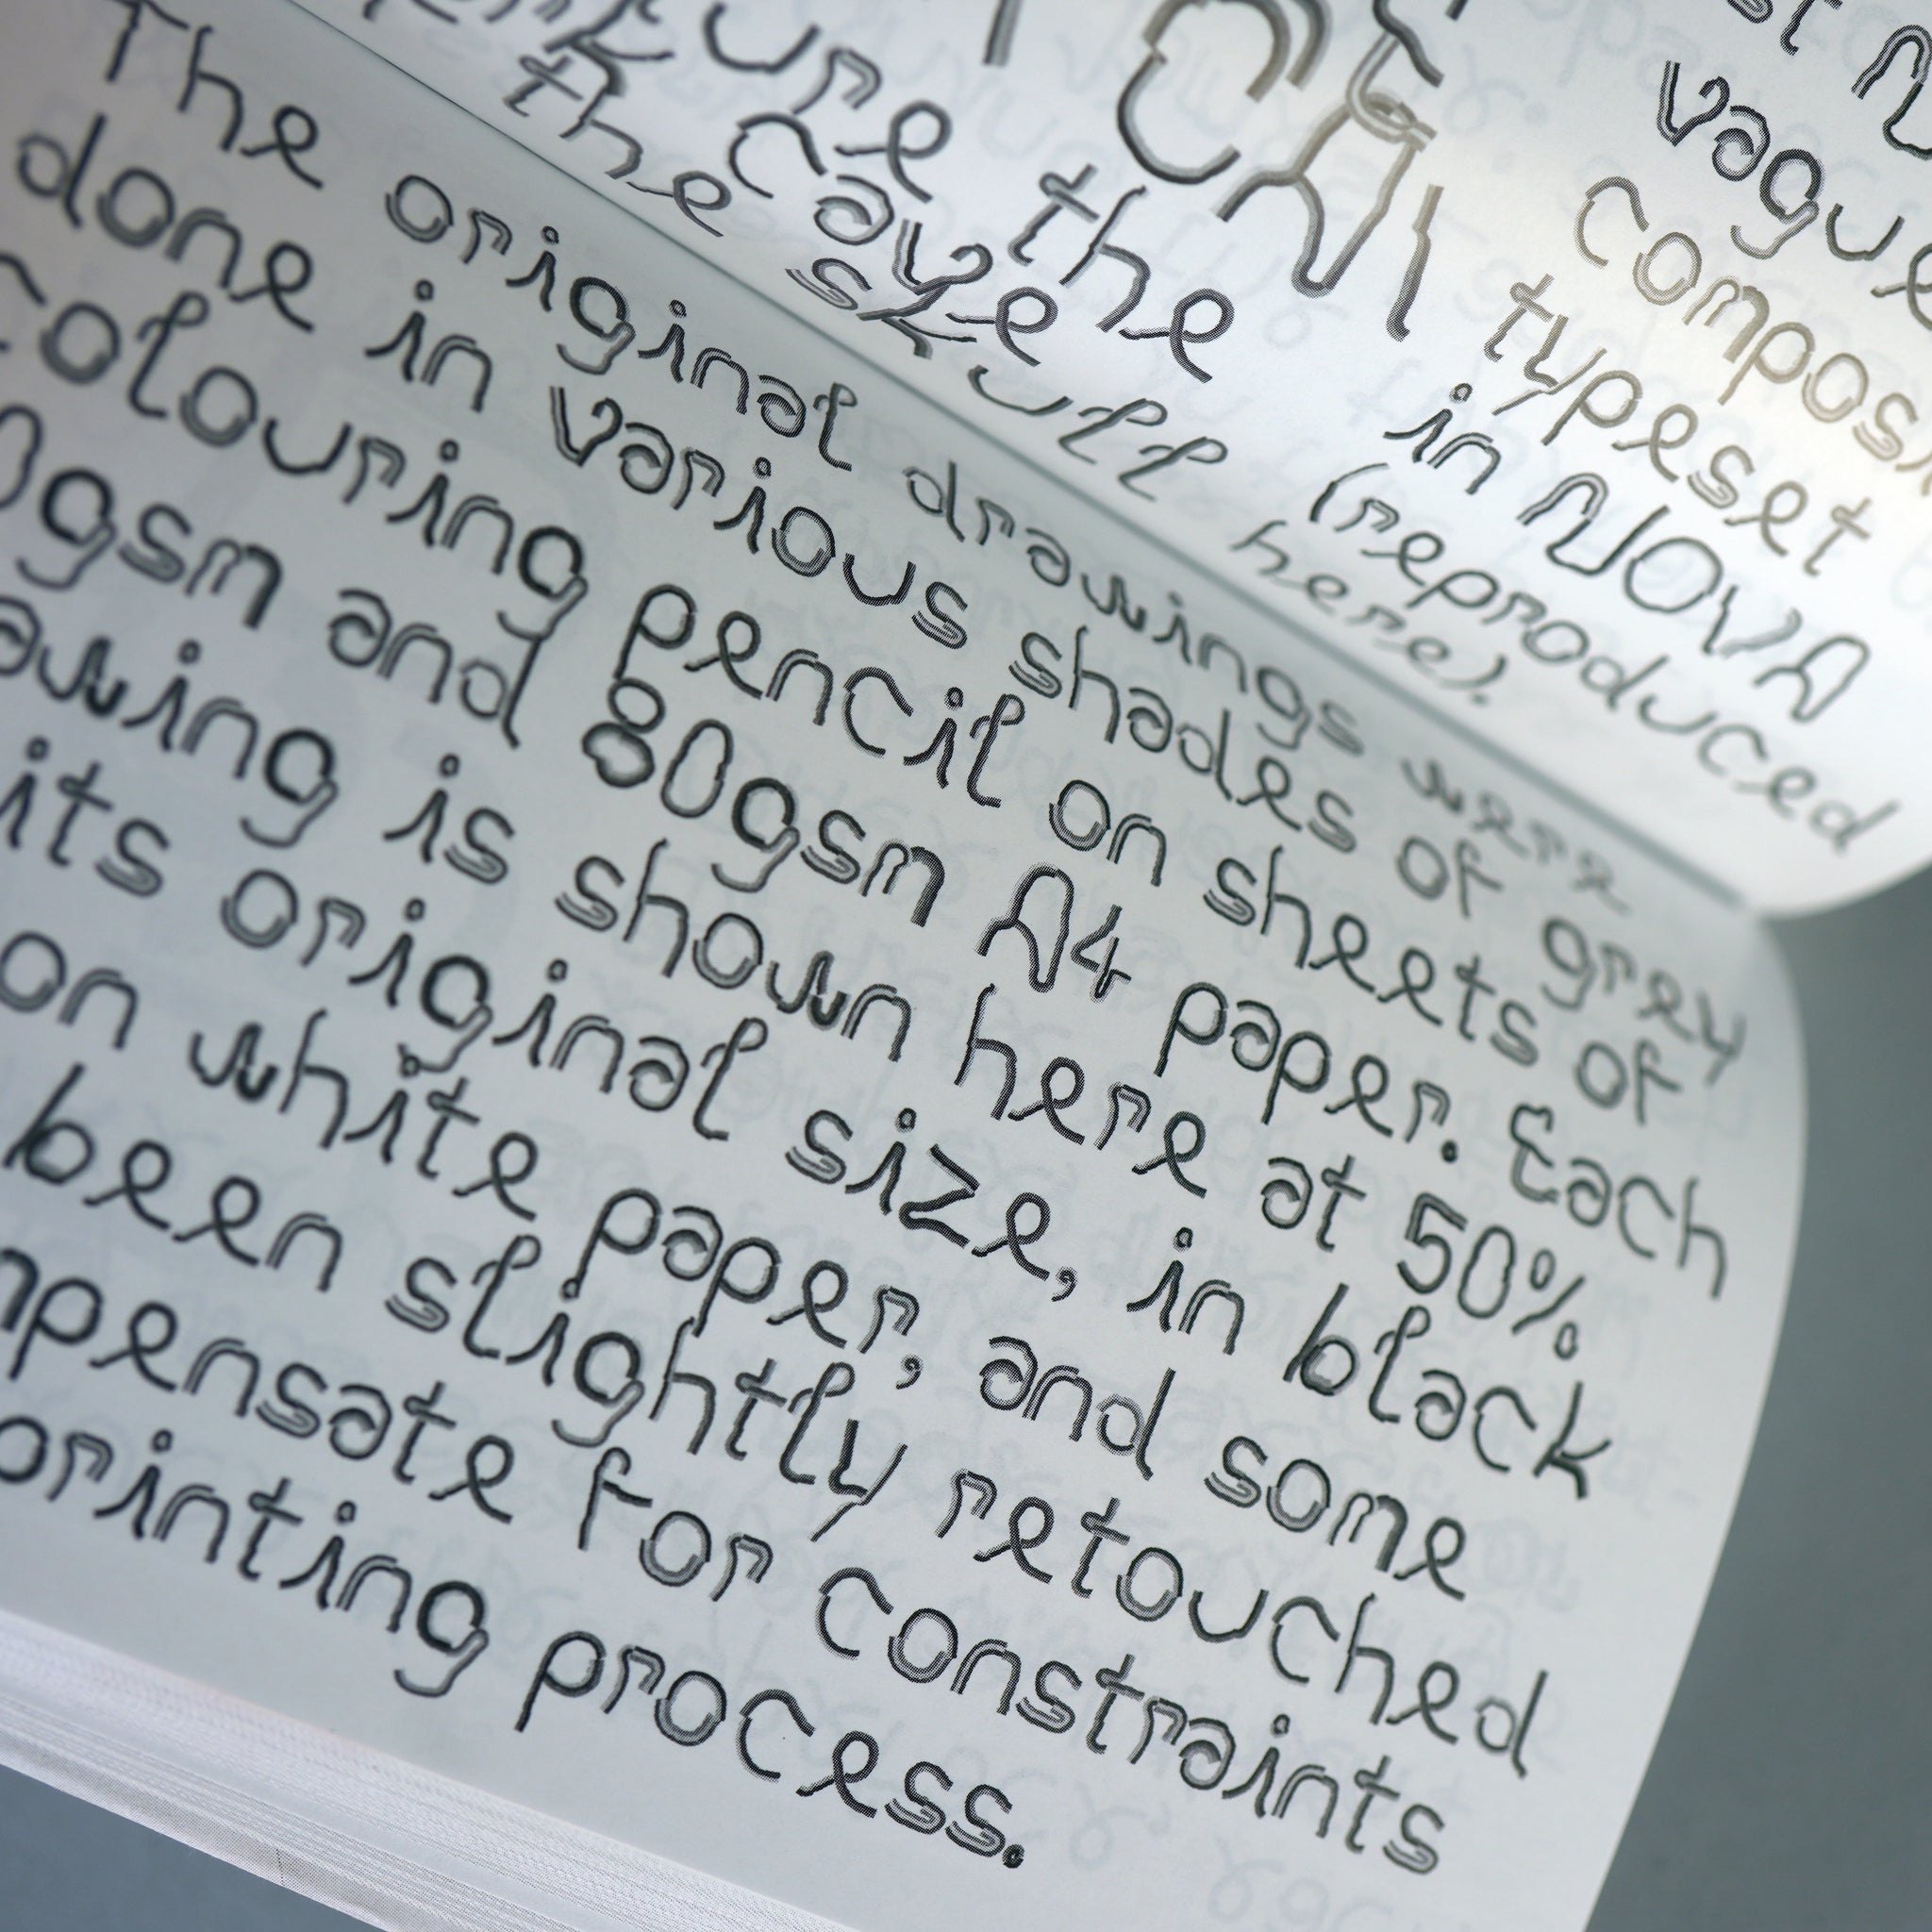 ture the
the cave
the skull here).
st
vague
compos
typeset
in NOVA
(reproduced
The original drawings were
done in various shades of grey
colouring pencil on sheets of
0gsm and 80gsm A4 paper. Each
awing is shown here at 50%
its original size, in black
on white paper, and some
been slightly retouched
mpensate for constraints
printing process.